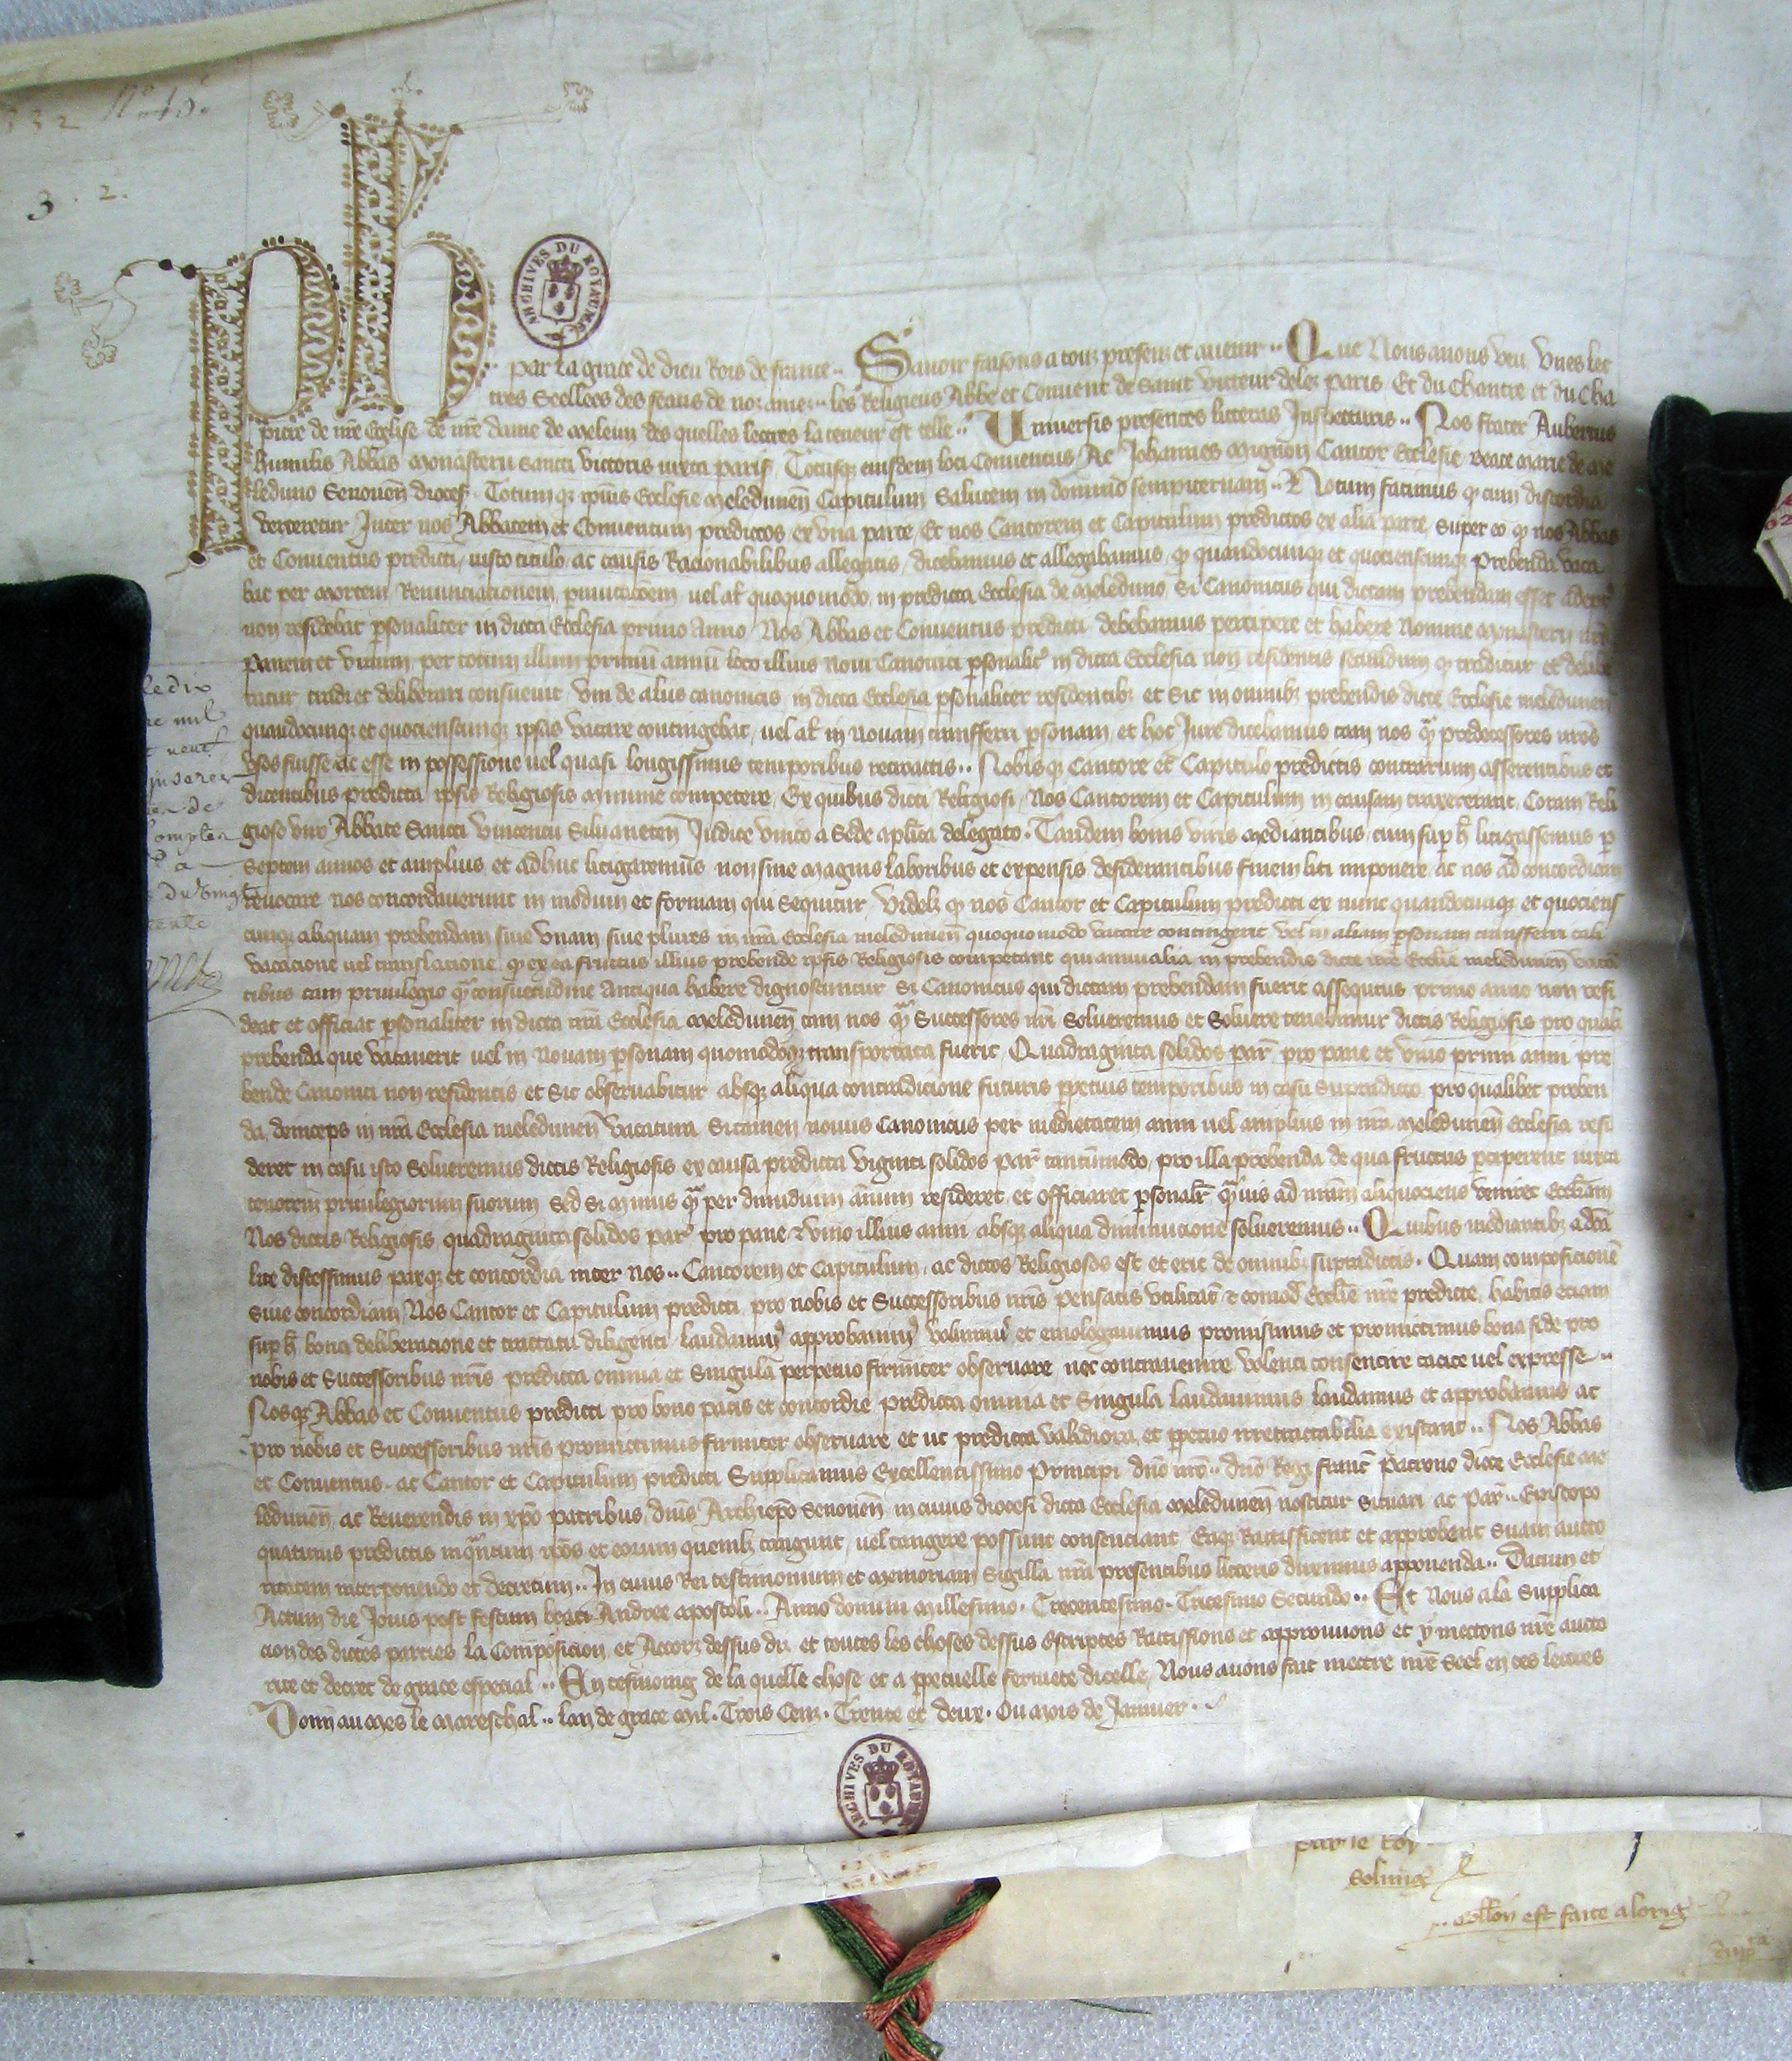 332 No 15.
3.2.
Ph
ARCHIVES DU ROYAUME
par la grace de dieu Rois de france.. Savoir faisons a touz presenz et avenir.. Que Nous avons veu unes let
tres Seellees des seaus de noz amez.. les Religieus Abbe et Convent de Saint victeur delez paris Et du Chantre et du Cha
pitre de nre Eglise de nre dame de Meleun des quelles lectres la teneur est telle.. Universis presentes litteras Inspecturis.. Nos frater Aubertus
humilis Abbas Monasterii sancti victoris iuxta paris Totusqz eiusdem loci Conventus Ac Johannes Mignon Cantor Ecclesie beate Marie de Me
leduno Senonen dioces Totumqz ipius Ecclesie Meledunen Capitulum Salutem in domino sempiternam.. Notum facimus q cum discordia
verteretur Inter nos Abbatem et Conventum predictos ex una parte Et nos Cantorem et Capitulum predictos ex alia parte Super eo q nos Abbas
et Conventus predicti iusto titulo ac causis Racionabilibus allegatis dicebamus et allegabamus q quandocunqz et quociescunqz Prebenda vaca
bat per Mortem Renunciationem pmutacoem vel al quoquomodo in predicta Ecclesia de Meleduno Si Canonicus qui dictam prebendam esset adept
non residebat psonaliter in dicta Ecclesia primo Anno Nos Abbas et Conventus predicti debebamus percipere et habere Nomine Monasterii nri
panem et vinum per totum illum primu annu loco illius novi Canonici psonalit in dicta Ecclesia non residentis secundum q traditur et delibe
ratur tradi et deliberari consuevit uni de aliis canonicis in dicta Ecclesia psonaliter residentibz et Sic in omnibz prebendis dicte Ecclesie meledunen
quandocunqz et quociescunqz ipsas vacare contingebat vel al in Novam transferri psonam et hoc Jure dicebamus tam nos q predecessores nros
usos fuisse ac esse in possessione vel quasi longissimis temporibus retroactis.. Nobisqz Cantore et Capitulo predictis contrarium asserentibus et
dicentibus predicta ipsis Religiosis Minime competere Ex quibus dicti Religiosi Nos Cantorem et Capitulum in causam traxerant Coram Reli
gioso viro Abbate Sancti vincentii Silvaneten Judice unico a Sede aplica delegato. Tandem bonis viris Mediantibus cum sup h litigassemus p
Septem annos et amplius et adhuc litigaremus non sine Magnis laboribus et expensis desiderantibus finem liti imponere ac nos ad concordiam
revocare nos concordaverunt in modum et formam qui Sequitur Videlz q nos Cantor et Capitulum predicti ex nunc quandocunqz et quociens
cunqz aliquam prebendam sive unam sive plures in nra Ecclesia meledunen quoquomodo vacare contingerit vel in aliam psonam transferri tali
vacacione vel translacione q ex ea fructus illius prebende ipsis Religiosis competant qui annualia in prebendis dicte nre Ecclie meledunen vacan
tibus tam privilegio q consuetudine Antiqua habere dignoscuntur Si Canonicus qui dictam prebendam fuerit assequtus primo anno non resi
deat et officiat psonaliter in dicta nra Ecclesia Meledunen tam nos q Successores nri Solveremus et Solvere tenebimur dictis Religiosis pro qualibz
prebenda que vacaverit vel in Novam psonam quomodoqz transportata fuerit Quadraginta solidos par pro pane et vino primi anni pre
bende Canonici non residentis et Sic observabitur absqz aliqua contradicione futuris ppetuis temporibus in casu Supradicto pro qualibet preben
da deinceps in nra Ecclesia meledunen vacatura Si tamen novus Canonicus per medietatem anni vel amplius in nra Meledunen Ecclesia resi
deret in casu isto Solveremus dictis Religiosis ex causa predicta viginti solidos par tantumodo pro illa prebenda de qua fructus pciperent iuxta
tenorem privilegiorum suorum Sed Si Minus q per dimidium annum resideret et officiaret psonalr qvis ad nram aliquociens veniret Eccliam
Nos dictis Religiosis quadraginta solidos par pro pane & vino illius anni absqz aliqua diminucione solveremus.. Quibus mediantibz a dca
lite discessimus paxqz et concordia inter nos.. Cantorem et Capitulum ac dictos Religiosos est et erit de omnibz supradictis. Quam composicione
Sive concordiam Nos Cantor et Capitulum predicti pro nobis et Successoribus nris pensatis utilitat & comod Ecclie nre predicte habitis eciam
sup h bona deliberacione et tractatu diligenti laudamus approbamus volumus et emologavimus promisimus et promictimus bona fide pro
nobis et Successoribus nris predicta omnia et Singula perpetuo firmiter observare nec contravenire volenti consentire tacite vel expresse..
Nosqz Abbas et Conventus predicti pro bono pacis et concordie predicta omnia et Singula laudavimus laudamus et approbamus ac
pro nobis et Successoribus nris promictimus firmiter observare et ut predicta validiora et ppetuo irretractabilia existant.. Nos Abbas
et Conventus ac Cantor et Capitulum predicti Supplicamus Excellentissimo Principi dno nro.. dno Regi franc Patrono dicte Ecclesie Me
ledunen ac Reverendis in xpo patribus dnis Archiepo Senonen in cuius diocesi dicta Ecclesia Meledunen noscitur Situari ac par.. Episcopo
quatinus predictis inqntum ipos et eorum quemlz tangunt vel tangere possunt consenciant Eaqz Rattifficent et approbent Suam aucto
ritatem interponendo et decretum.. In cuius Rei testimonium et Memoriam Sigilla nra presentibus litteris duximus apponenda.. Datum et
Actum die Jovis post festum beati Andree apostoli.. Anno domini Millesimo. Trecentesimo. Tricesimo Secundo.. Et Nous a la Supplica
cion des dictes parties la Composicion et Accorz dessus diz et toutes les choses dessus Escriptes Rattiffions et approuvons et y mectons nre aucto
rite et decret de grace especial.. En tesmoing de la quelle chose et a ppetuelle fermete dicelle Nous avons fait mectre nre Seel en ces lectres
Donn au Mes le Mareschal.. lan de grace Mil. Trois Cenz. Trente et deux. Ou Mois de Janvier..
ARCHIVES DU ROYAUME
par le Roy
collon est faite a lorig